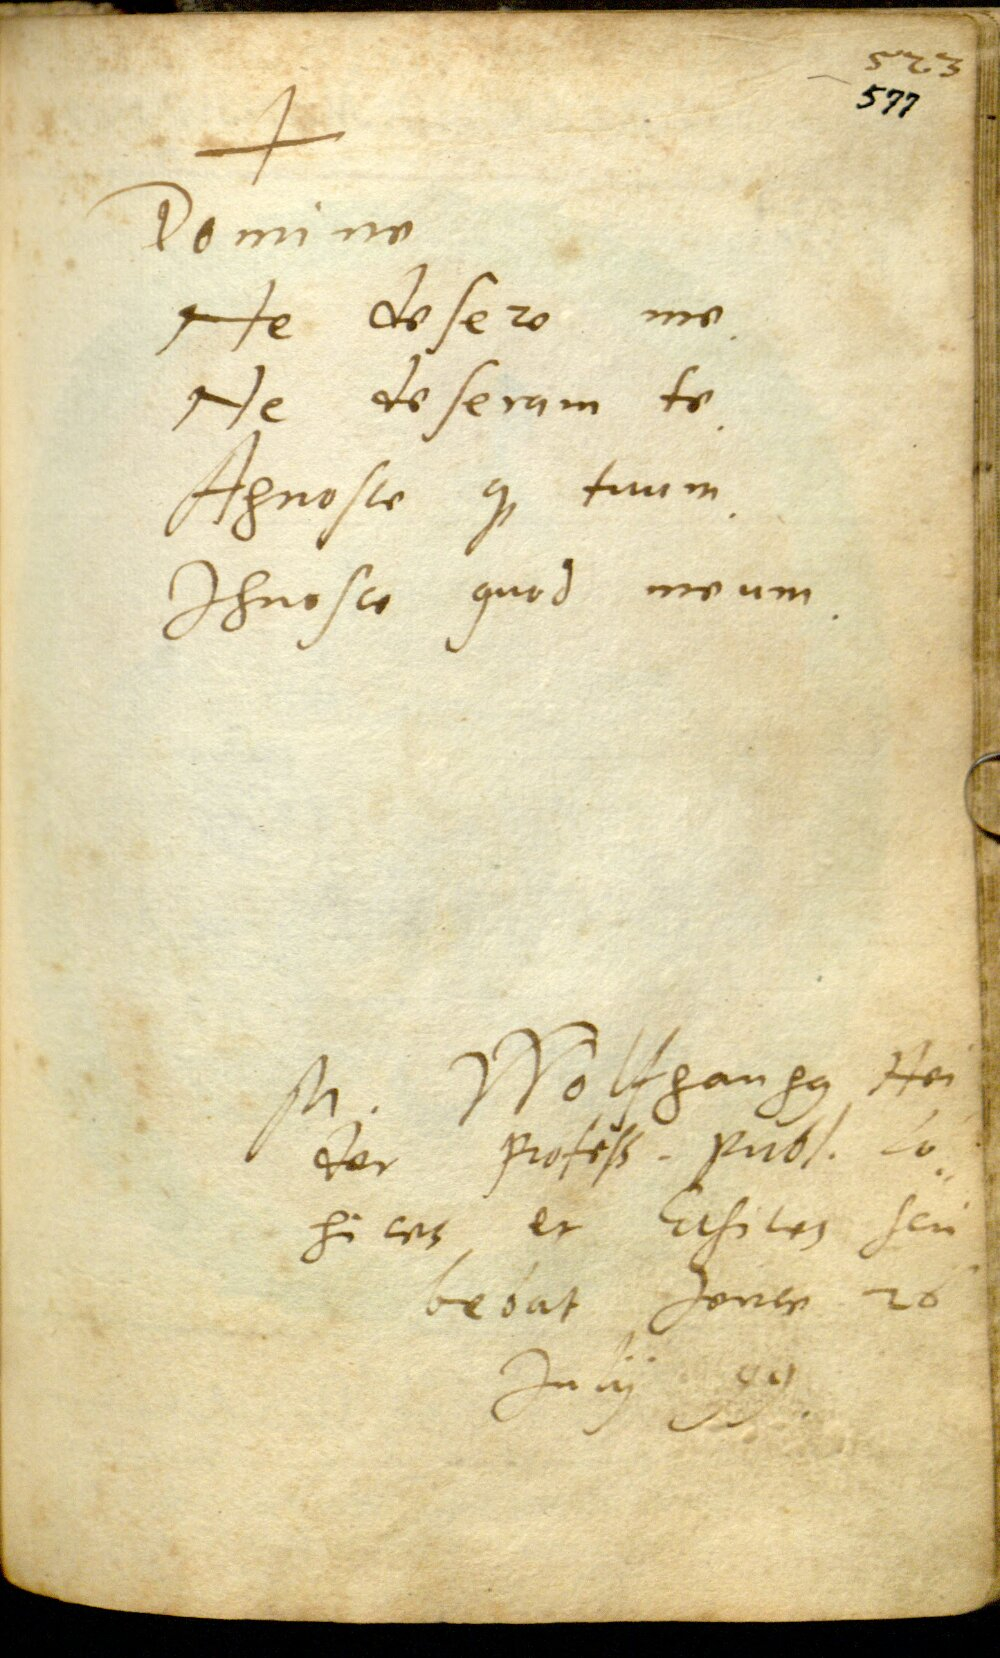 523
577
Domine
Ne desere me.
Ne deseram te.
Agnosce q̃ tuum.
Ignosce quod meum.
M. Wolfgangg Hei
der profess. publ. Lo
gices et Ethices scri
bebat Jenae 26
Julij 99.